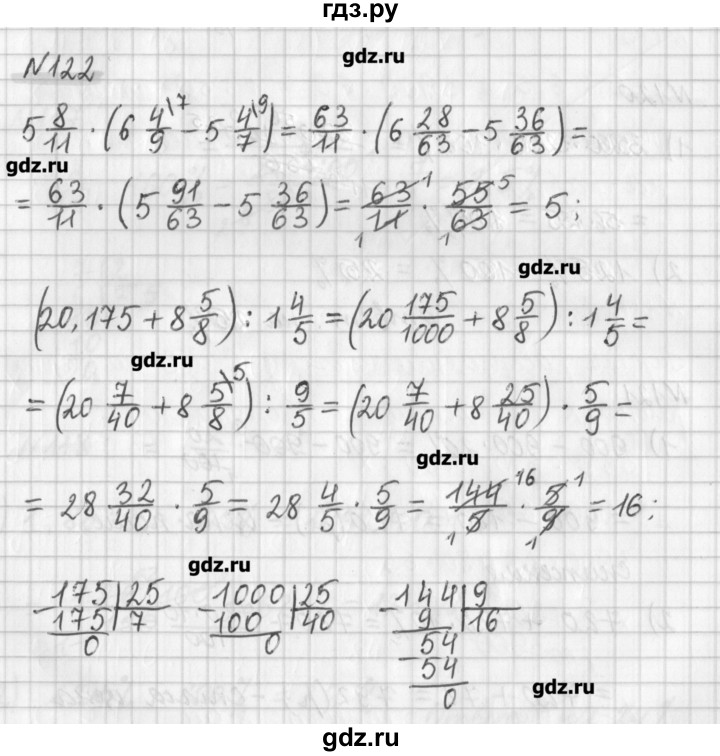 гдз.ру
gdz.ru
№122
5 8/11 · (6 4/9\7 − 5 4/7\9) = 63/11 · (6 28/63 − 5 36/63) =
gdz.ru
= 63/11 · (5 91/63 − 5 36/63) = 63/11 1 1 · 55/63 5 1 = 5;
gdz.ru
(20,175 + 8 5/8) : 1 4/5 = (20 175/1000 + 8 5/8) : 1 4/5 =
gdz.ru
= (20 7/40 + 8 5/8\5) : 9/5 = (20 7/40 + 8 25/40) · 5/9 =
gdz.ru
= 28 32/40 · 5/9 = 28 4/5 · 5/9 = 144/5 16 1 · 5/9 1 1 = 16;
gdz.ru
− 175 | 25 − 1000 | 25 − 144 | 9
175 | 7 100 | 40 9 | 16
0 0 − 54
54
0
gdz.ru
gdz.ru